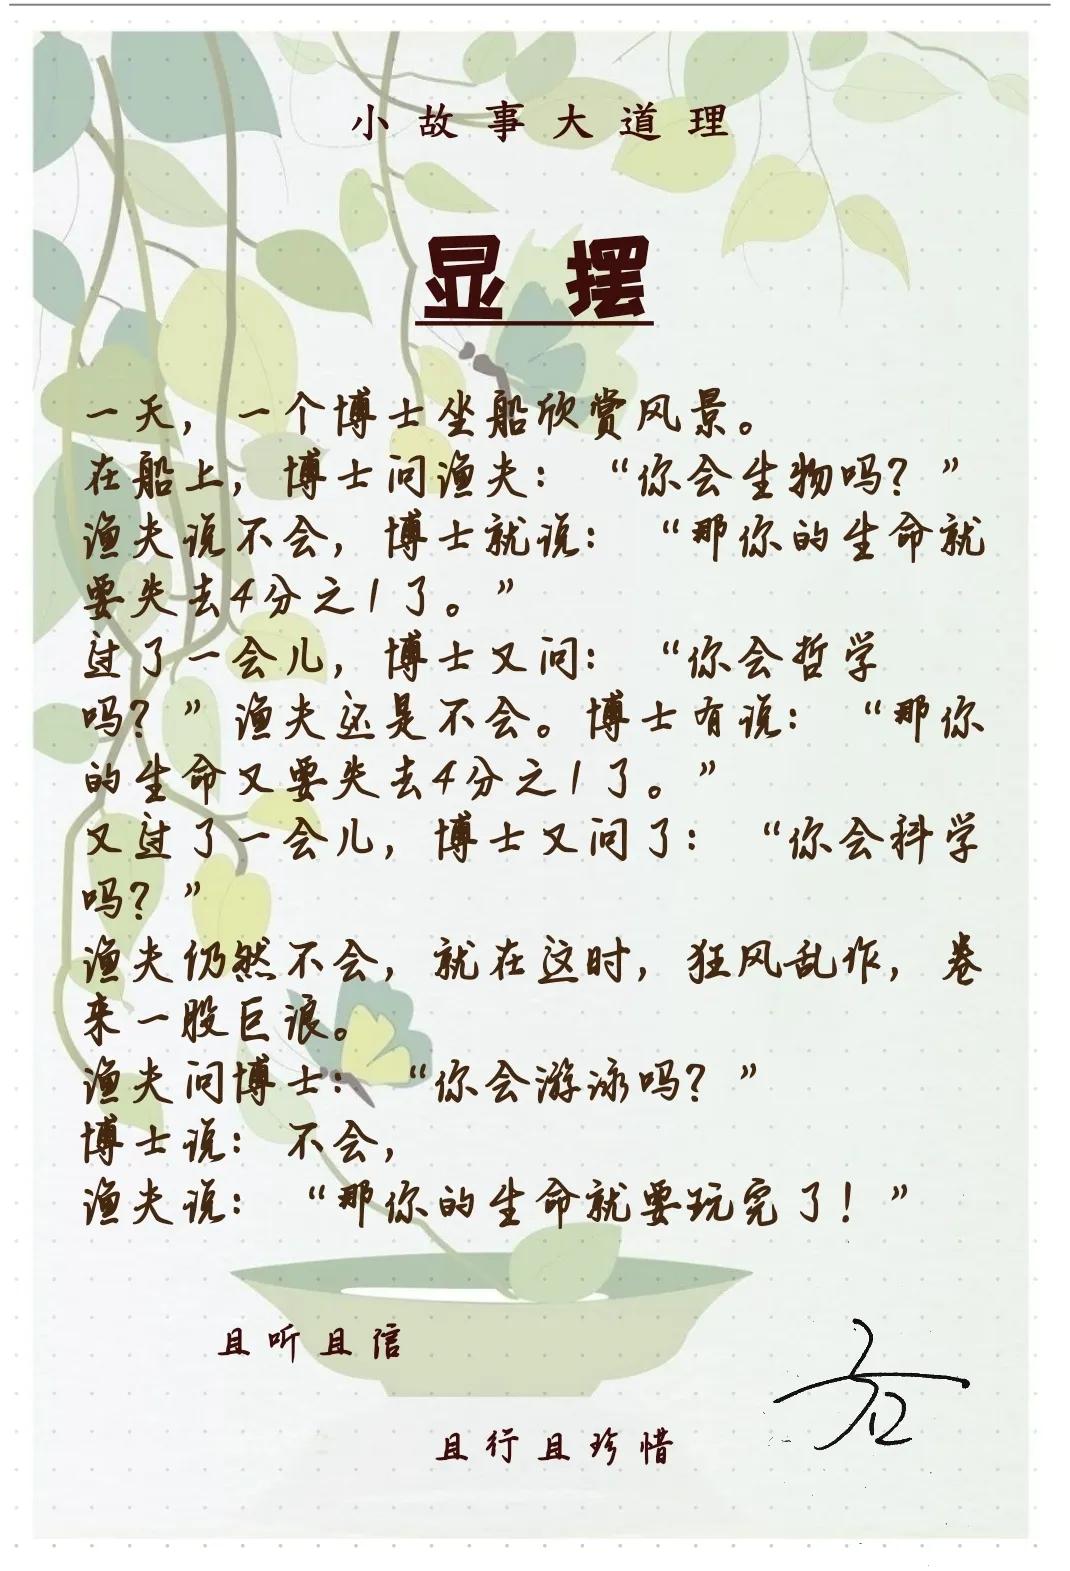 小故事大道理
显摆
一天，一个博士坐船欣赏风景。
在船上，博士问渔夫：“你会生物吗？”
渔夫说不会，博士就说：“那你的生命就
要失去4分之1了。”
过了一会儿，博士又问：“你会哲学
吗？”渔夫还是不会。博士有说：“那你
的生命又要失去4分之1了。”
又过了一会儿，博士又问了：“你会科学
吗？”
渔夫仍然不会，就在这时，狂风乱作，卷
来一股巨浪。
渔夫问博士：“你会游泳吗？”
博士说：不会，
渔夫说：“那你的生命就要玩完了！”
且听且信
且行且珍惜